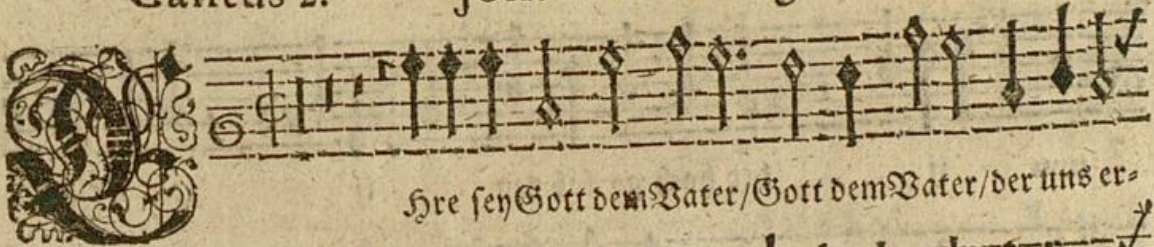 Cantus 2.
Ehre sey Gott dem Vater/Gott dem Vater/der uns er=